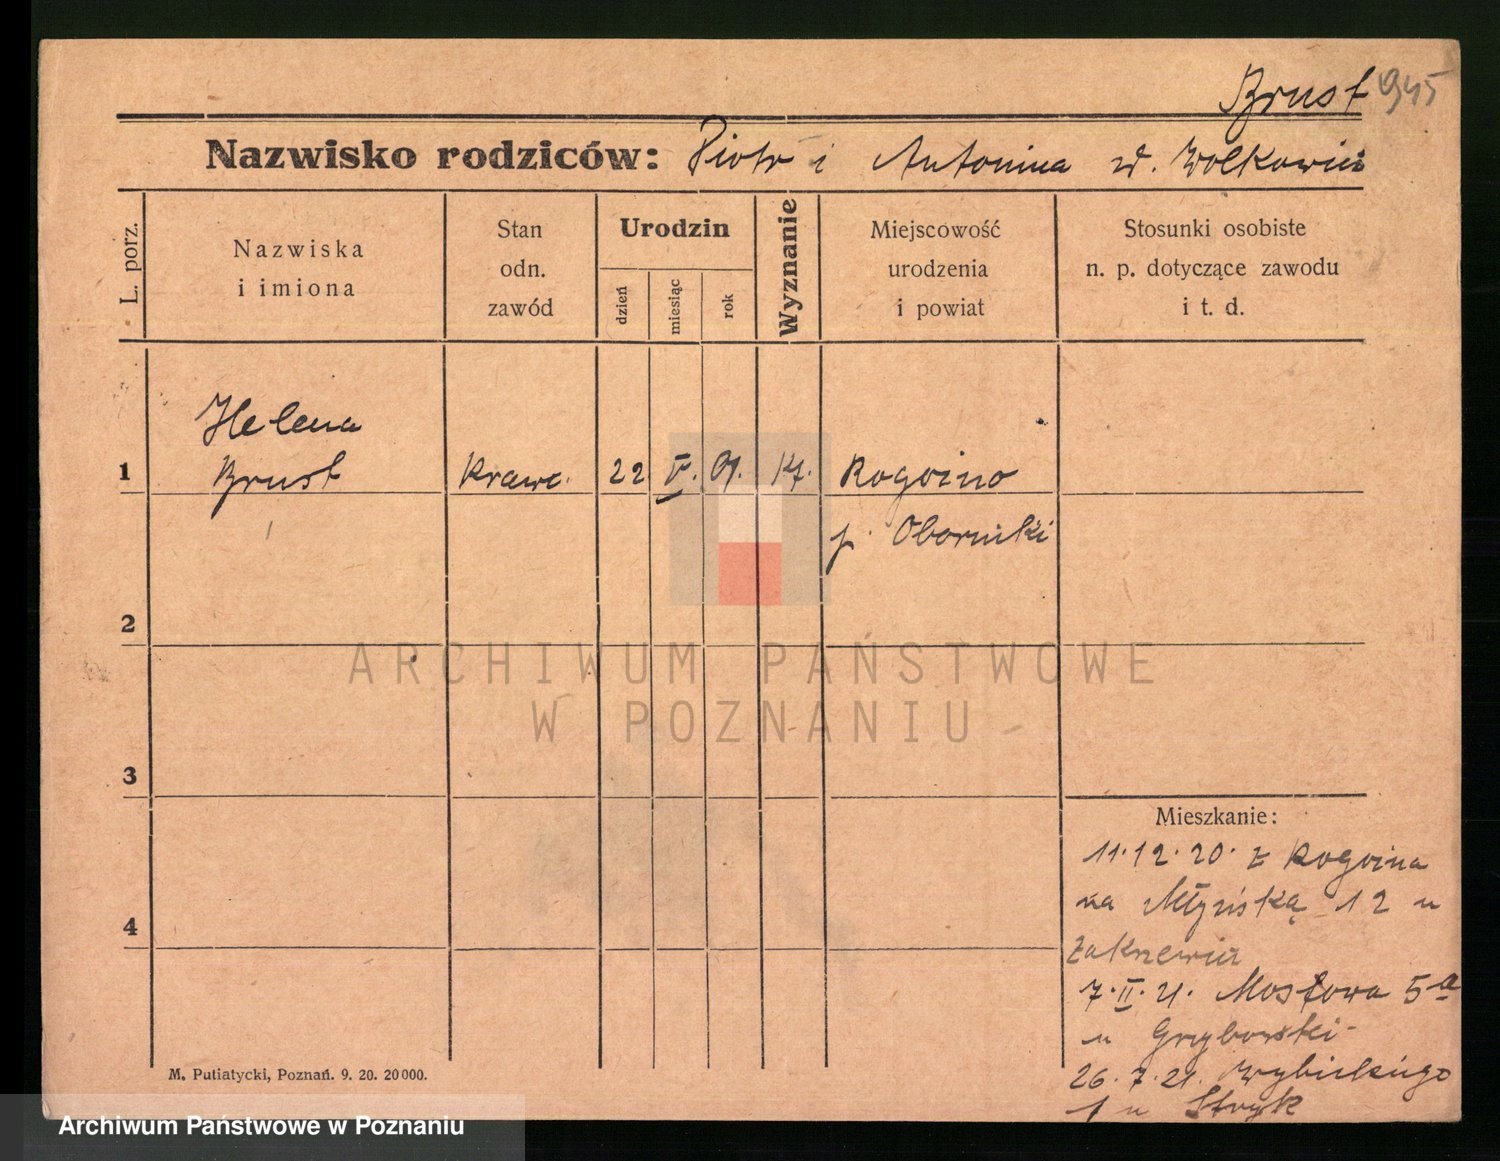 Brust 945
Nazwisko rodziców: Piotr i Antonina
L. porz.
Nazwiska
i imiona
Stan
odn.
zawód
Urodzin
dzień
miesiąc
rok
Wyznanie
Miejscowość
urodzenia
i powiat
Stosunki osobiste
n. p. dotyczące zawodu
i t. d.
Helena
1 Brust Krawc. 22 V. 01. Kt. Rogoźno
p. Oborniki
2
ARCHIWUM PAŃSTWOWE
W POZNANIU
3
Mieszkanie:
11.12.20. z Rogoźna
na Młyńską 12 u
7.II.21. Mostowa 5a
u
4
26.7.21. Wybickiego
1 u Stryk
M. Putiatycki, Poznań. 9. 20. 20000.
Archiwum Państwowe w Poznaniu